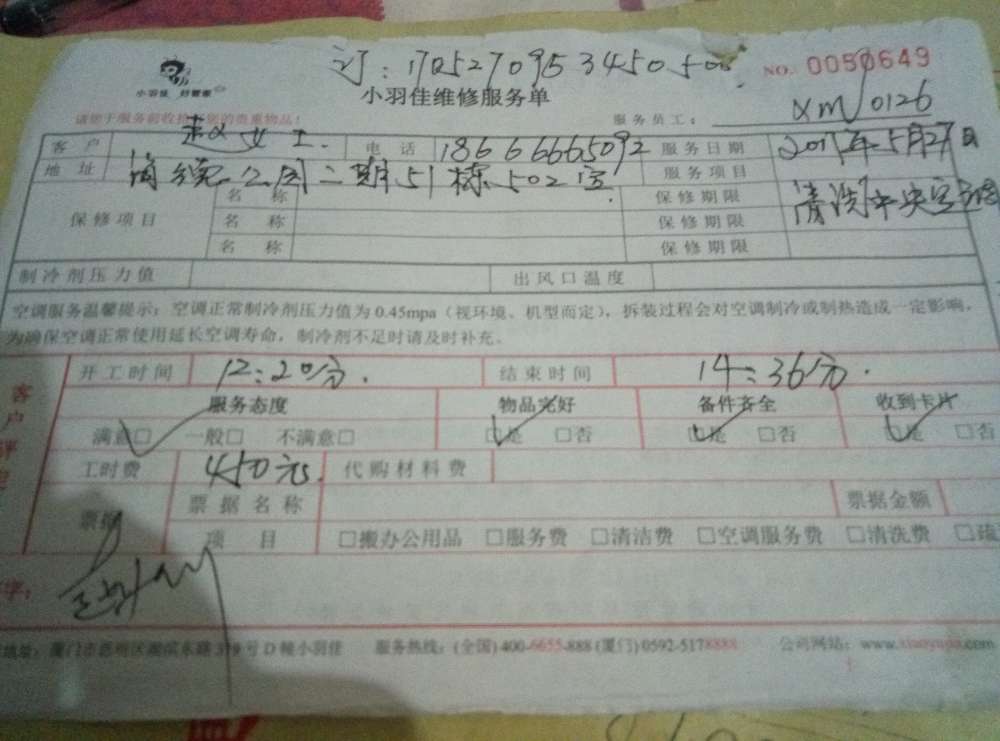 订：1705270953450500
NO. 0050649
小羽佳 好管家
小羽佳维修服务单
请您于服务前收拾好您的贵重物品！
服务员工： xm 0126
客户 赵女士. 电话 18666665092 服务日期 2017年5月27日
地址 公园二期51栋502室 服务项目 清洗中央空调
保修项目 名称 保修期限
名称 保修期限
名称 保修期限
制冷剂压力值 出风口温度
空调服务温馨提示：空调正常制冷剂压力值为 0.45mpa（视环境、机型而定），拆装过程会对空调制冷或制热造成一定影响，
为确保空调正常使用延长空调寿命，制冷剂不足时请及时补充。
客户评
开工时间 12:20分. 结束时间 14:36分.
服务态度 物品完好 备件齐全 收到卡片
满意□ 一般□ 不满意□ □是 □否 □是 □否 □是 □否
工时费 450元. 代购材料费
票据 票据名称 票据金额
项目 □搬办公用品 □服务费 □清洁费 □空调服务费 □清洗费 □疏
字：
地址：厦门市思明区湖滨东路 319 号 D 幢小羽佳 服务热线：(全国) 400-6655-888 (厦门) 0592-5178888 公司网站：www.xiaoyujia.com